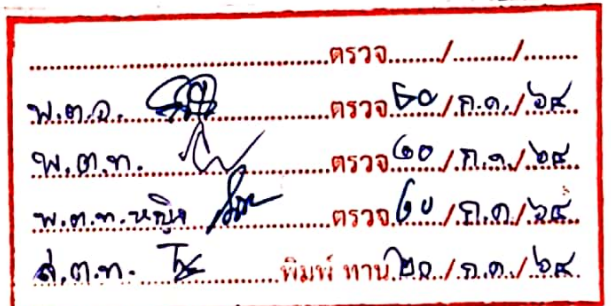 ....................ตรวจ......../........./........
พ.ต.อ. ตรวจ ๒๐ / ก.ค. / ๖๔
พ.ต.ท. ตรวจ ๒๐ / ก.ค. / ๖๔
พ.ต.ท.หญิง ตรวจ ๒๐ / ก.ค. / ๖๔
ส.ต.ท. พิมพ์ ทาน ๒๐ / ก.ค. / ๖๔